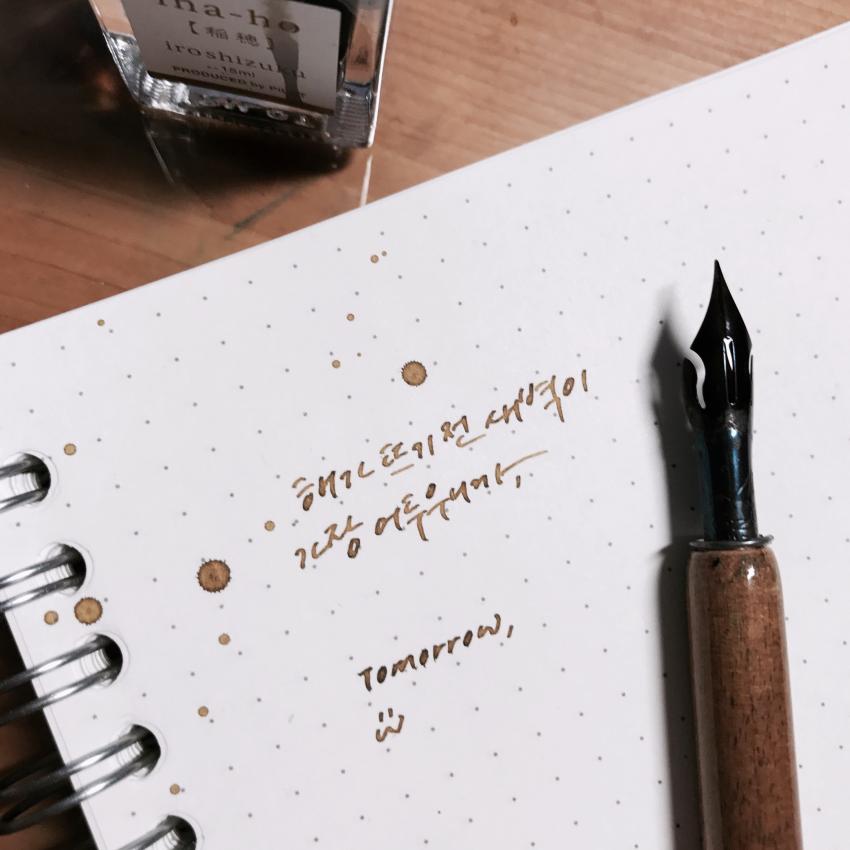 ina-ho
【稲穂】
iroshizuku
15ml
PRODUCED by PILOT
해가 뜨기 전 새벽이
가장 어두우니까,
Tomorrow,